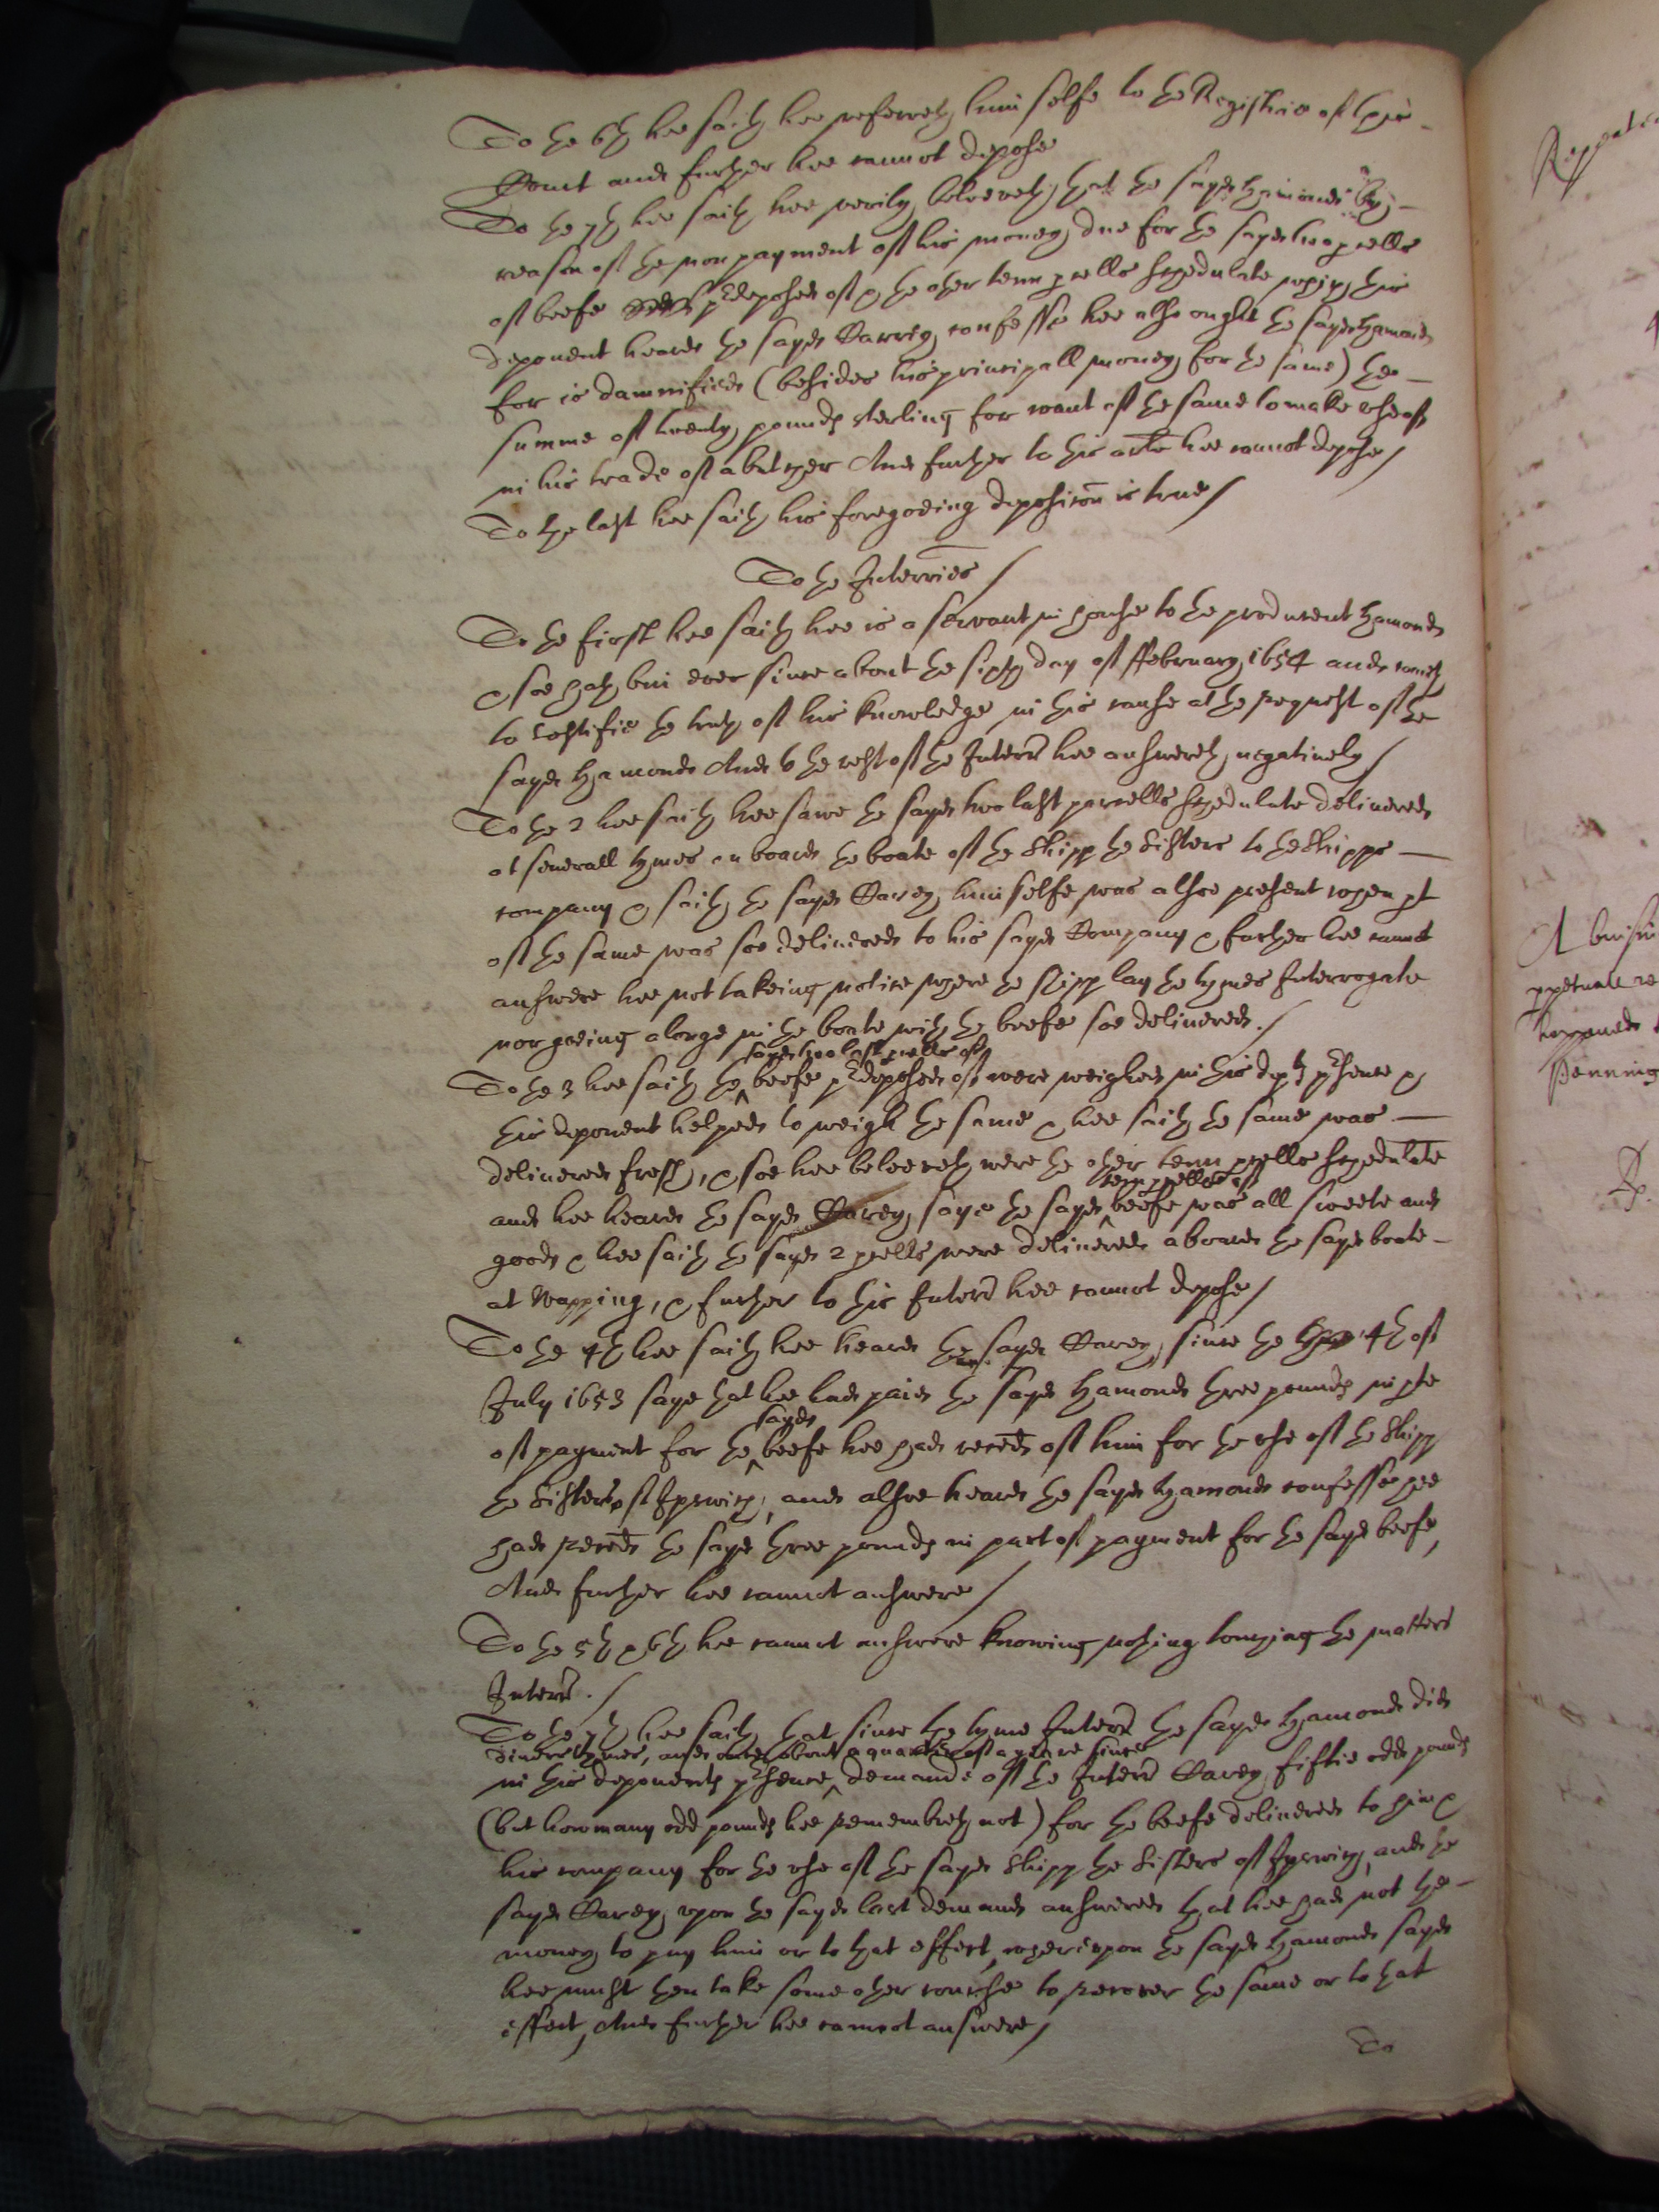 To the 6th hee saith hee referreth himselfe to the Registrie of this
Court and further hee cannot depose
To the 7th hee saith hee verily beleeveth, that the sayd Hamond by
reason of the non payment of his money due for the sayd two pcells
of beefe predeposed of & the other tenn pcells schedulate which this
deponent heard the sayd Carrey confesse hee also ought the sayd Hamond
for is damnified (besides his principall money for the same) the
summe of twenty pounds sterling for want of the same to make use of
in his trade of a butcher And further to this arte hee cannot depose /
To the last hee saith his foregoeing deposicon is true /
To the Interries /
To the first hee saith hee is a servant in house to the producent Hamond
& soe hath bin ever since about the sixth day of ffebruary 1654 and cometh
to testifie the truth of his knowledge in this cause at the request of the
sayd Hamond And to the rest of the Interr hee answereth negatively /
To the 2 hee saith hee sawe the sayd two last parcells schedulate delivered
at severall tymes on board the boate of the Shipp the Sisters to the Shipps
company & saith the sayd Carey himselfe was alsoe present when pt
of the same was soe delivered to his sayd Company & further hee cannot
answere hee not takeing notice where the shipp lay the tymes Interrogate
nor goeing alonge in the boate with the beefe soe delivered. /
sayd two last pcells of
To the 3 hee saith the beefe predeposed of were weighed in this depts presence &
this deponent helped to weigh the same & hee saith the same was
delivered fresh, & soe hee beleeveth were the other tenn pcells schedulate
tenn pcells of
and hee heard the sayd Carey saye the sayd beefe was all sweete and
good & hee saith the sayd 2 pcells were delivered aboard the sayd boate
at Wapping, & further to this Interr hee cannot depose /
To the 4th hee saith hee heard the sayd Carey, since the 4th of
July 1653 saye that hee had paid the sayd Hamond three pounds in pte
sayd
of payment for the beefe hee had receed of him for the use of the Shipp
the Sisters of Ipswich, and alsoe heard the sayd Hamond confesse hee
had receed the sayd three pounds in part of payment for the sayd beefe,
And further hee cannot answere /
To the 5th & 6th hee cannot answere knowing nothing touching the matters
Interr. /
To the 7th hee saith that since the tyme Interr the sayd Hamond did
divers tymes, and once about a quarter of a yeare since
in this deponents presence demande of the Interr Carey fiftie odd pounds
(but how many odd pounds hee remembreth not) for the beefe delivered to him &
his company for the use of the sayd Shipp the Sisters of Ipswich, and the
sayd Carey upon the sayd last demand answered that hee had not the
money to pay him or to that effect, whereupon the sayd Hamond sayd
hee must then take some other course to recover the same or to that
effect, And further hee cannot answere /
To
A